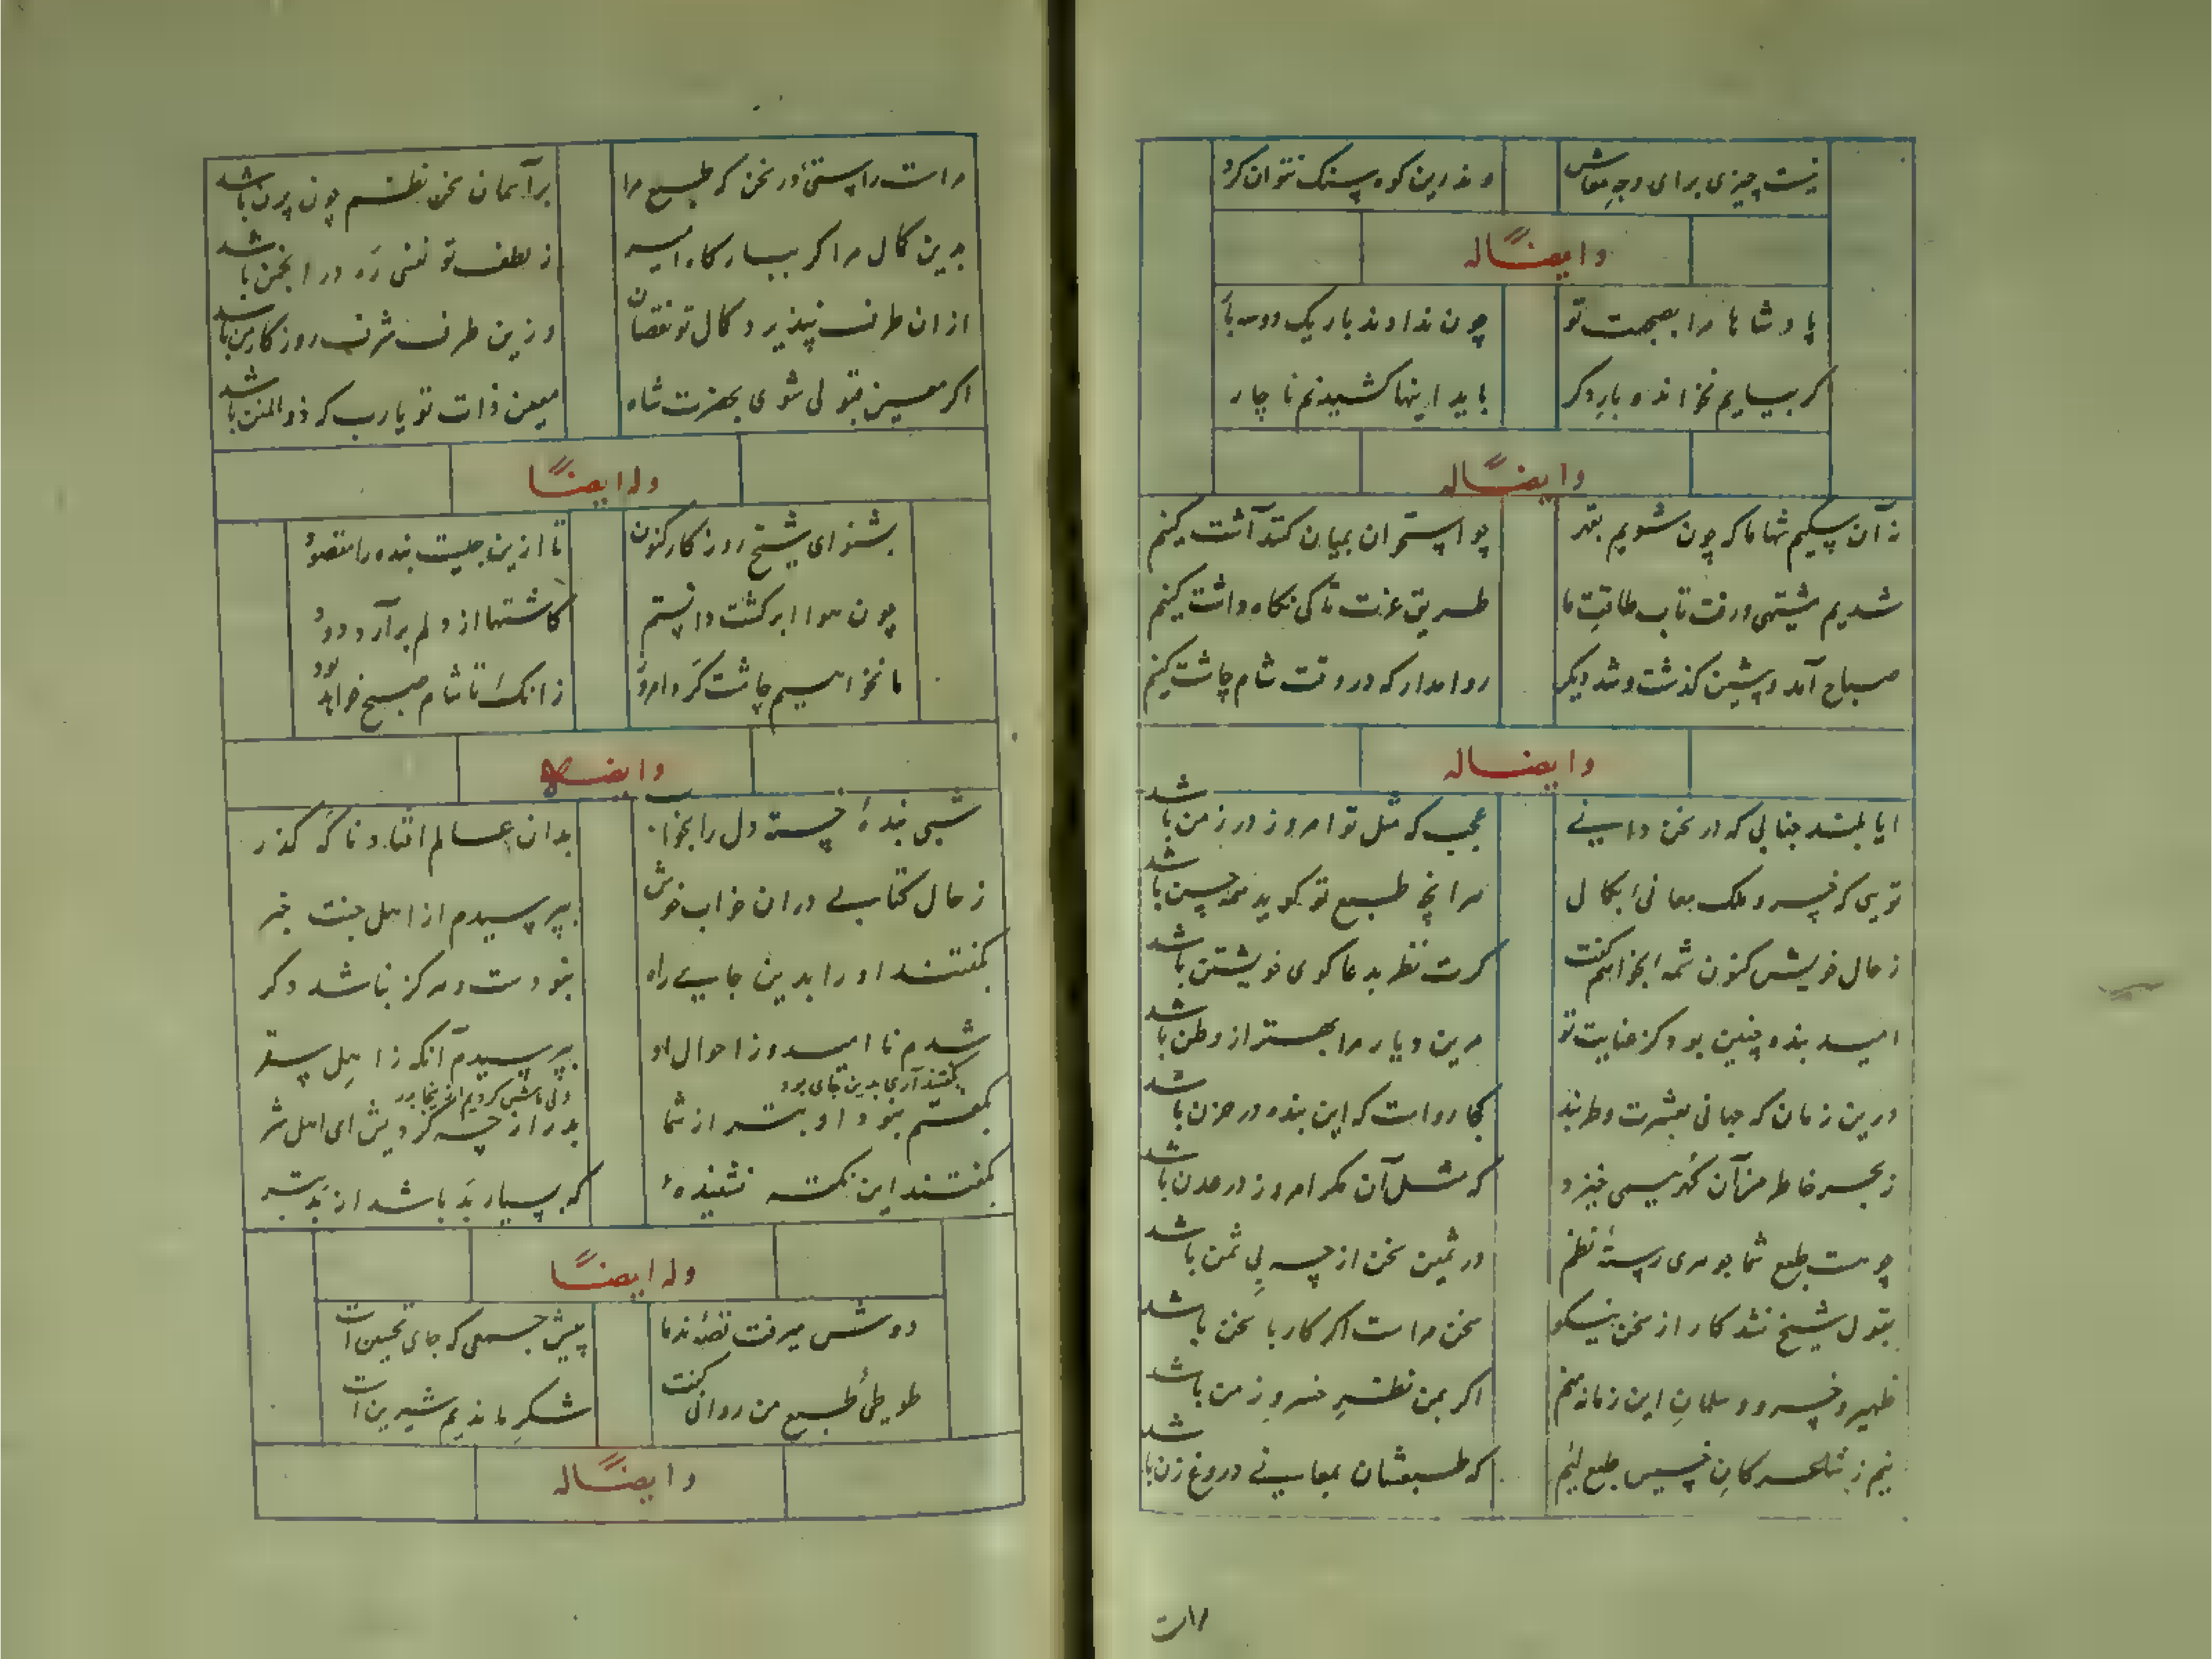 نیست چیزی برای وجه معاش    وندرین کوه سنک نتوان کرد
وایضاً له
پادشاها مرا بصحبت تو    چون ندادند بار یک دو سه بار
کر بیایم نخواند و بار دکر    باید اینها کشیدنم ناچار
وایضاً له
ز آن سکیم شها ما که چون شویم بقهر    چو استخوان بمیان کتد آشت کنیم
شدیم مشتهی و رفت تاب طاقت ما    طریق عزت تا کی نکاه داشت کنیم
صباح آمد و پیشین کذشت و شد دیکر    روا مدار که در وقت شام چاشت کنیم
وایضا له
ایا بلند جنابی که در سخن دانی    عجب که مثل تو امروز در زمن باشد
تویی که خسرو ملک معانی بکمال    مرانچ طبع تو کوید همه حسن باشد
ز حال خویش کنون شمهٔ بخواهم کفت    کرت نظر بدعا کوی خویشتن باشد
امید بنده چنین بود کز عنایت تو    مرین دیار مرا بهتر از وطن باشد
درین زمان که جهانی بعشرت و طربند    کجا رواست که این بنده در حزن باشد
ز بحر خاطر من آن کهر همی خیزد    که مثل آن مکر امروز در عدن باشد
چو هست طبع شما جوهری رستهٔ نظم    در ثمین سخن از چه بی ثمن باشد
بقول شیخ نشد کار از سخن نیکو    سخن مراست اکر کار با سخن باشد
ظهیر و خسرو و سلمان این زمانه منم    اکر بمن نظر خسرو زمن باشد
نیم ز شاعرکان خسیس طبع لئیم    که طبعشان بمعانی دروغ زن باشد
راست
مراست راستئ در سخن که طبع مرا    بر آسمان سخن نظم چون پرن باشد
بدین کمال مرا کر ببارکاه امیر    ز لطف تو نفسی ره در انجمن باشد
از ان طرف نپذیرد کمال تو نقصان    وزین طرف شرف روزکار من باشد
اکر معین قبولی شوی بحضرت شاه    معین ذات تو یارب که ذوالمنن باشد
وله ایضاً
بشنو ای شیخ روزکار کنون    تا ازین چیست بنده را مقصود
چون هوا ابر کشت دانستم    کاشتها از دلم برآرد دود
ما نخواهیم چاشت کرد امروز    زانک تا شام صبح خواهد بود
وایضا له
شبی بندهٔ خسته دل را بخواب    بدان عالم افتاد ناکه کذر
ز حال کتابی دران خواب خوش    بپرسیدم از اهل جنت خبر
بکفتند او را بدین جای راه    نبودست و هرکز نباشد دکر
شدم ناامید و ز احوال او    بپرسیدم آنکه ز اهل سقر
بکفتند آری بدین جای بود    ولی ماش کردیم ازینجا بدر
بکفتم نبود او بتر از شما    بدر از چه کردیش ای اهل شر
بکفتند این نکته نشنیدهٔ    که بسیار بد باشد از بد بتر
وله ایضاً
دوش میرفت قصهٔ ندما    پیش جمعی که جای تحسین است
طوطئ طبع من روان کفت    شکر ما ندیم شیرین است
وایضاً له